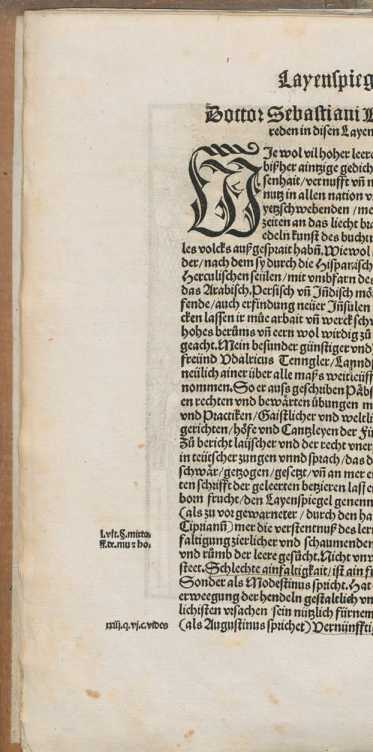 Layenspieg
Doctor Sebastiani
reden in disen Layen
WIe wol vil hoher leere
bißher aintzige gedich
senhait/vernufft vñ
nutz in allen nation
yetzschwebenden/me
zeiten an das liecht bra
edeln kunst des bucht
les volcks außgesprait habñ. Wiewol
der/nach dem sy durch die Hispanisch
Herculischen seülen/mit vmbfarn des
das Arabisch, Persisch vñ Jndisch mö
fende/auch erfindung neüer Jnsulen
cken lassen ir müe arbait vñ werck
hohes berůms vñ eern wol wirdig zů
geacht. Mein besunder günstiger vnd
freünd Vdalricus Tenngler/Lanndt
neülich ainer über alle maß weitleüff
nommen. So er auß geschriben Päbs
en rechten vnd bewärten übungen
vnd Practiken/Gaistlicher vnd weltli
gerichten/höfe vnd Cantzleyen der Fü
Zů bericht laijscher vnd der recht vner
in teütscher zungen vnnd sprach/das
schwär/getzogen/gesetzt/vñ an mer
ten schrifft der geleerten betzieren lassen
born frucht/den Layenspiegel genenn
(als zů vor gewarneter/durch den ha
Ciprianū) mer die verstentnuß des
faltigung zierlicher vnd schaumenden
vnd růmb der leere gesůcht. Nicht
steet. Schlechte ainfaltigkait/ist ain
Sonder als Modestinus spricht. Hat
erweegung der hendeln gestaltlich
lichisten vrsachen sein nützlich fürnem
(als Augustinus sprichet) Vernünffti
xxiij.q.vj.c.vides